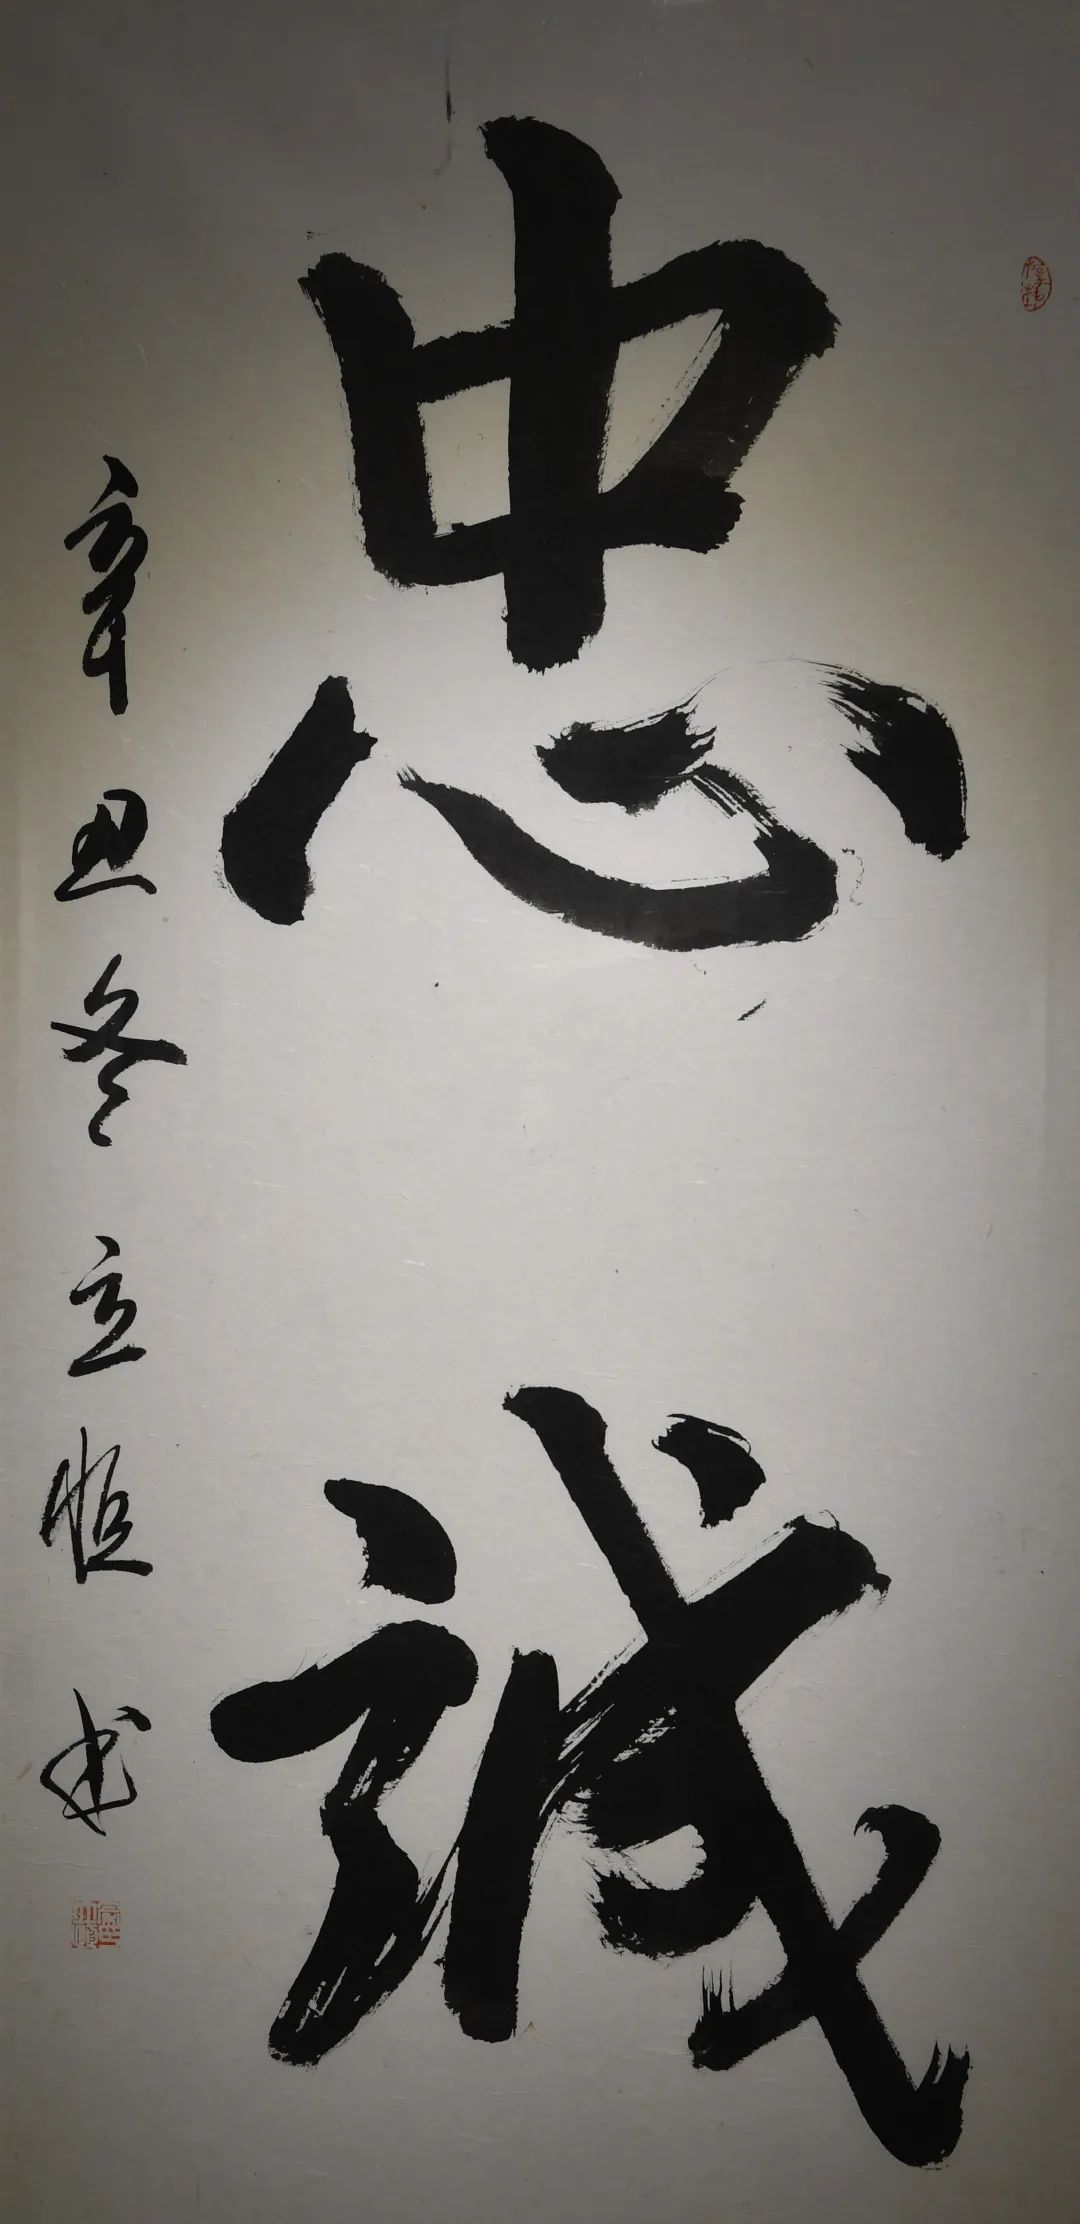 忠诚
辛丑冬立恒书